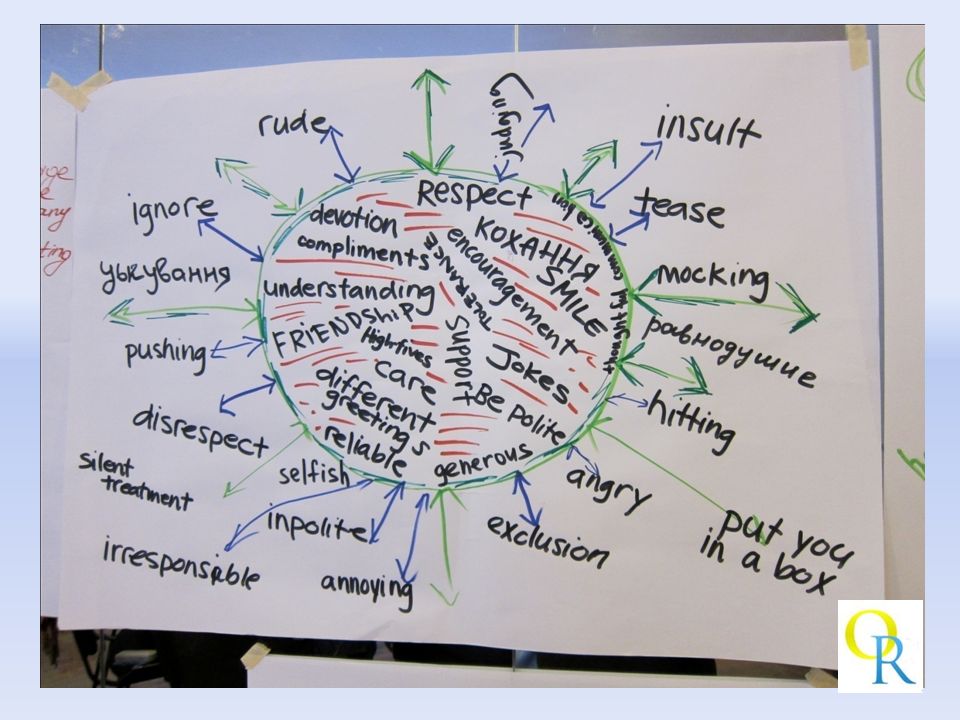 rude
judging
insult
ignore
tease
цькування
mocking
pushing
равнодушие
disrespect
hitting
silent
treatment
selfish
angry
inpolite
exclusion
put you
in a box
irresponsible
annoying
RESPECT
devotion
КОХАННЯ
compliments
encouragement
SMILE
understanding
TOLERANCE
FRIENDSHIP
High fives
Support
Jokes
care
different
greetings
Be polite
reliable
generous
OR